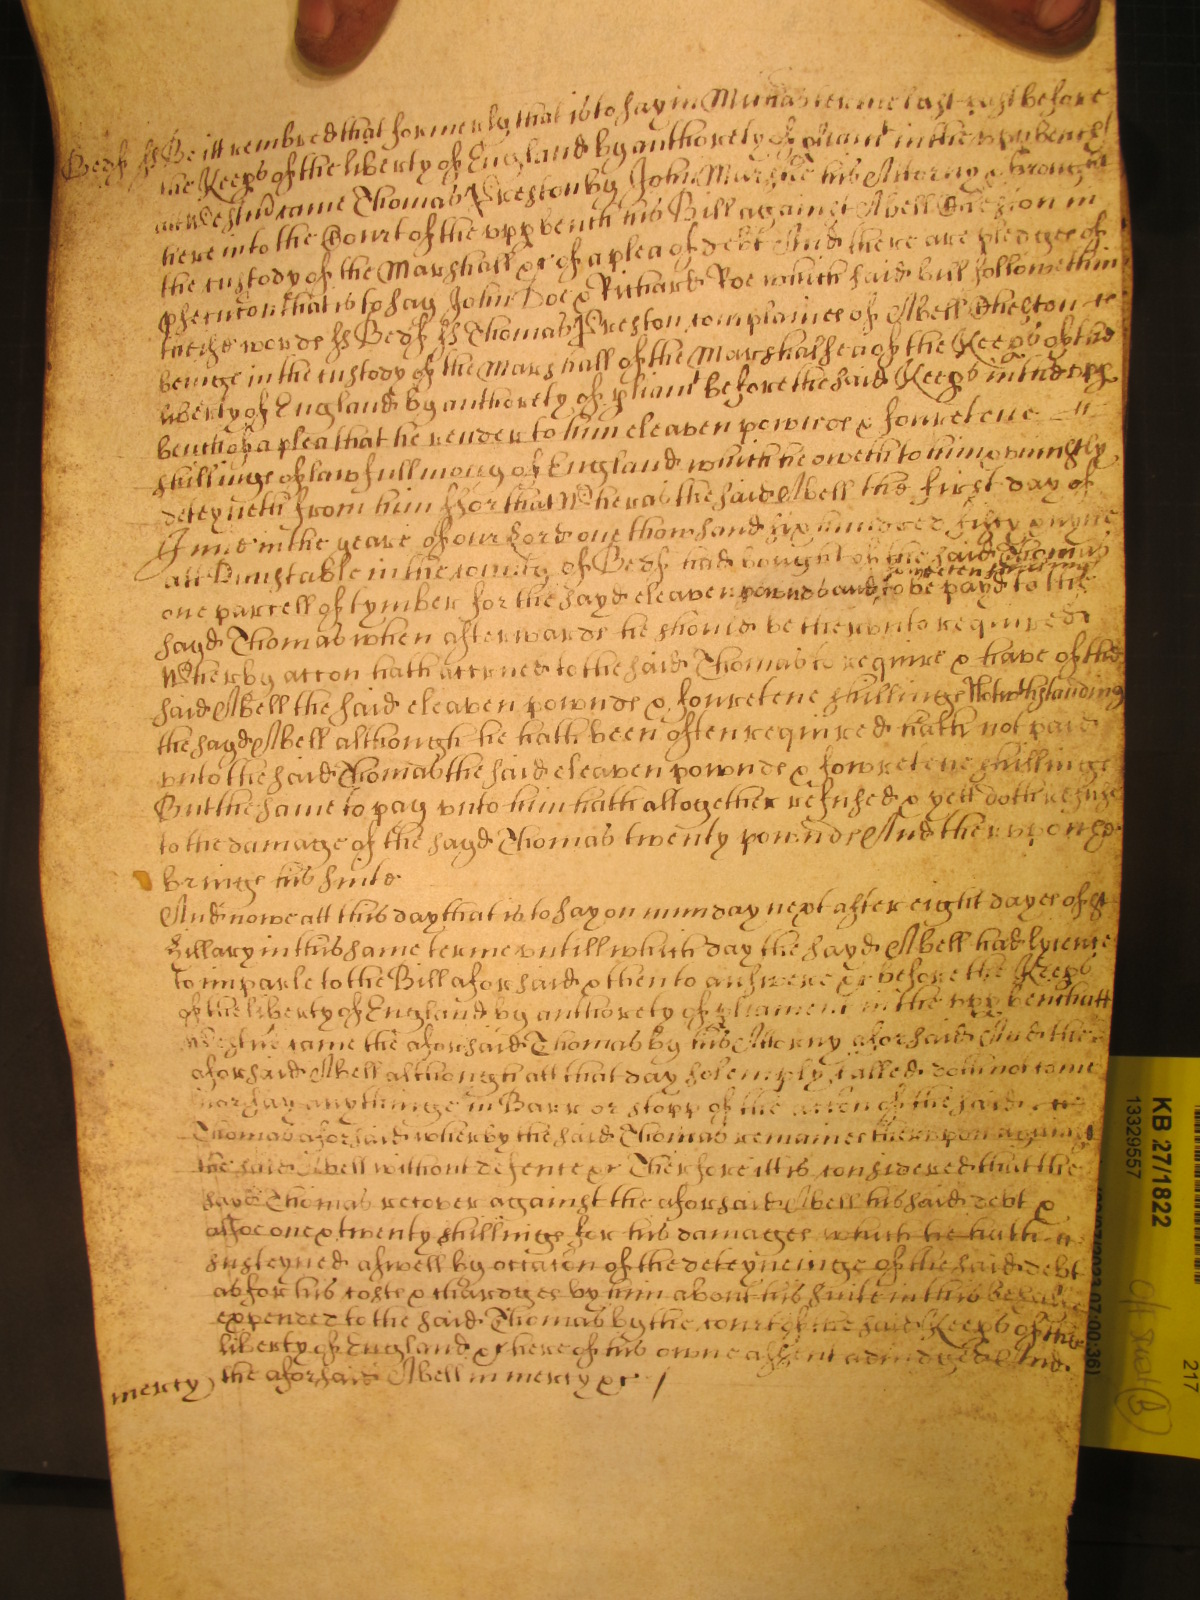 Bedf ss Be itt remembred that formerly that is to say in Michas terme last past before
the Keeps of the liberty of England by authorety of pliamt in the upp bench
att Westmr came Thomas Preston by John Marshe his Attorny & brought
here into the Court of the upp bench his Bill against Abell Chesson in
the custody of the Marshall &c of a plea of debt And there are pledges of
psecucon that is to say John Doe & Richard Roe which said bill followeth in
theise words ss Bedf ss Thomas Preston complaines of Abell Chesson
beinge in the custody of the Marshall of the Marshalsea of the Keeps of the
liberty of England by authorety of pliamt before the said Keeps in the upp
bench of a plea that he render to him eleaven pownds & fowretene
shillings of lawfull mony of England which he oweth to him & uniustly
deteyneth from him ffor that Wheras the said Abell the first day of
June in the yeare of our Lord one thowsand six hundred fifty & nyne
att Dunstable in the county of Bedf had bought of the said Thomas
one parcell of tymber for the sayd eleaven pownds and to be payd to the
sayd Thomas when afterwards he should be therunto required
Wherby accon hath accrued to the said Thomas to require & have of the
said Abell the said eleaven pownds & fowretene shillings Notwithstanding
the sayd Abell although he hath been often required hath not paid
unto the said Thomas the said eleaven pownds & fowretene shillings
But the same to pay unto him hath altogether refused & yett doth refuse
to the damage of the sayd Thomas twenty pownds And therupon he
bringe his suite
And nowe att this day that is to say on munday next after eight dayes of St
Hillary in this same terme untill which day the sayd Abell had lycence
to imparle to the Bill aforsaid & then to answere &c before the Keeps
of the liberty of England by authorety of pliament in the upp bench att
Westmr came the aforsaid Thomas by his Attorny aforsaid And the
aforsaid Abell although att that day solemply called doth not come
nor say anythinge in Barr or stopp of the accon of the said
Thomas aforsaid wherby the said Thomas remaines therupon against
the said Abell without defence &c Therfore itt is considered that the
sayd Thomas recover against the aforsaid Abell his said debt &
alsoe one & twenty shillings for his damages which he hath
susteyned aswell by occacon of the deteyneinge of the said debt
as for his costs & chardges by him about his suite in this behalfe
expended to the said Thomas by the court of the said Keeps of the
liberty of England &c here of his owne assent adiudged And
mercy the aforsaid Abell in mercy &c /
KB 27/1822
13329557
217